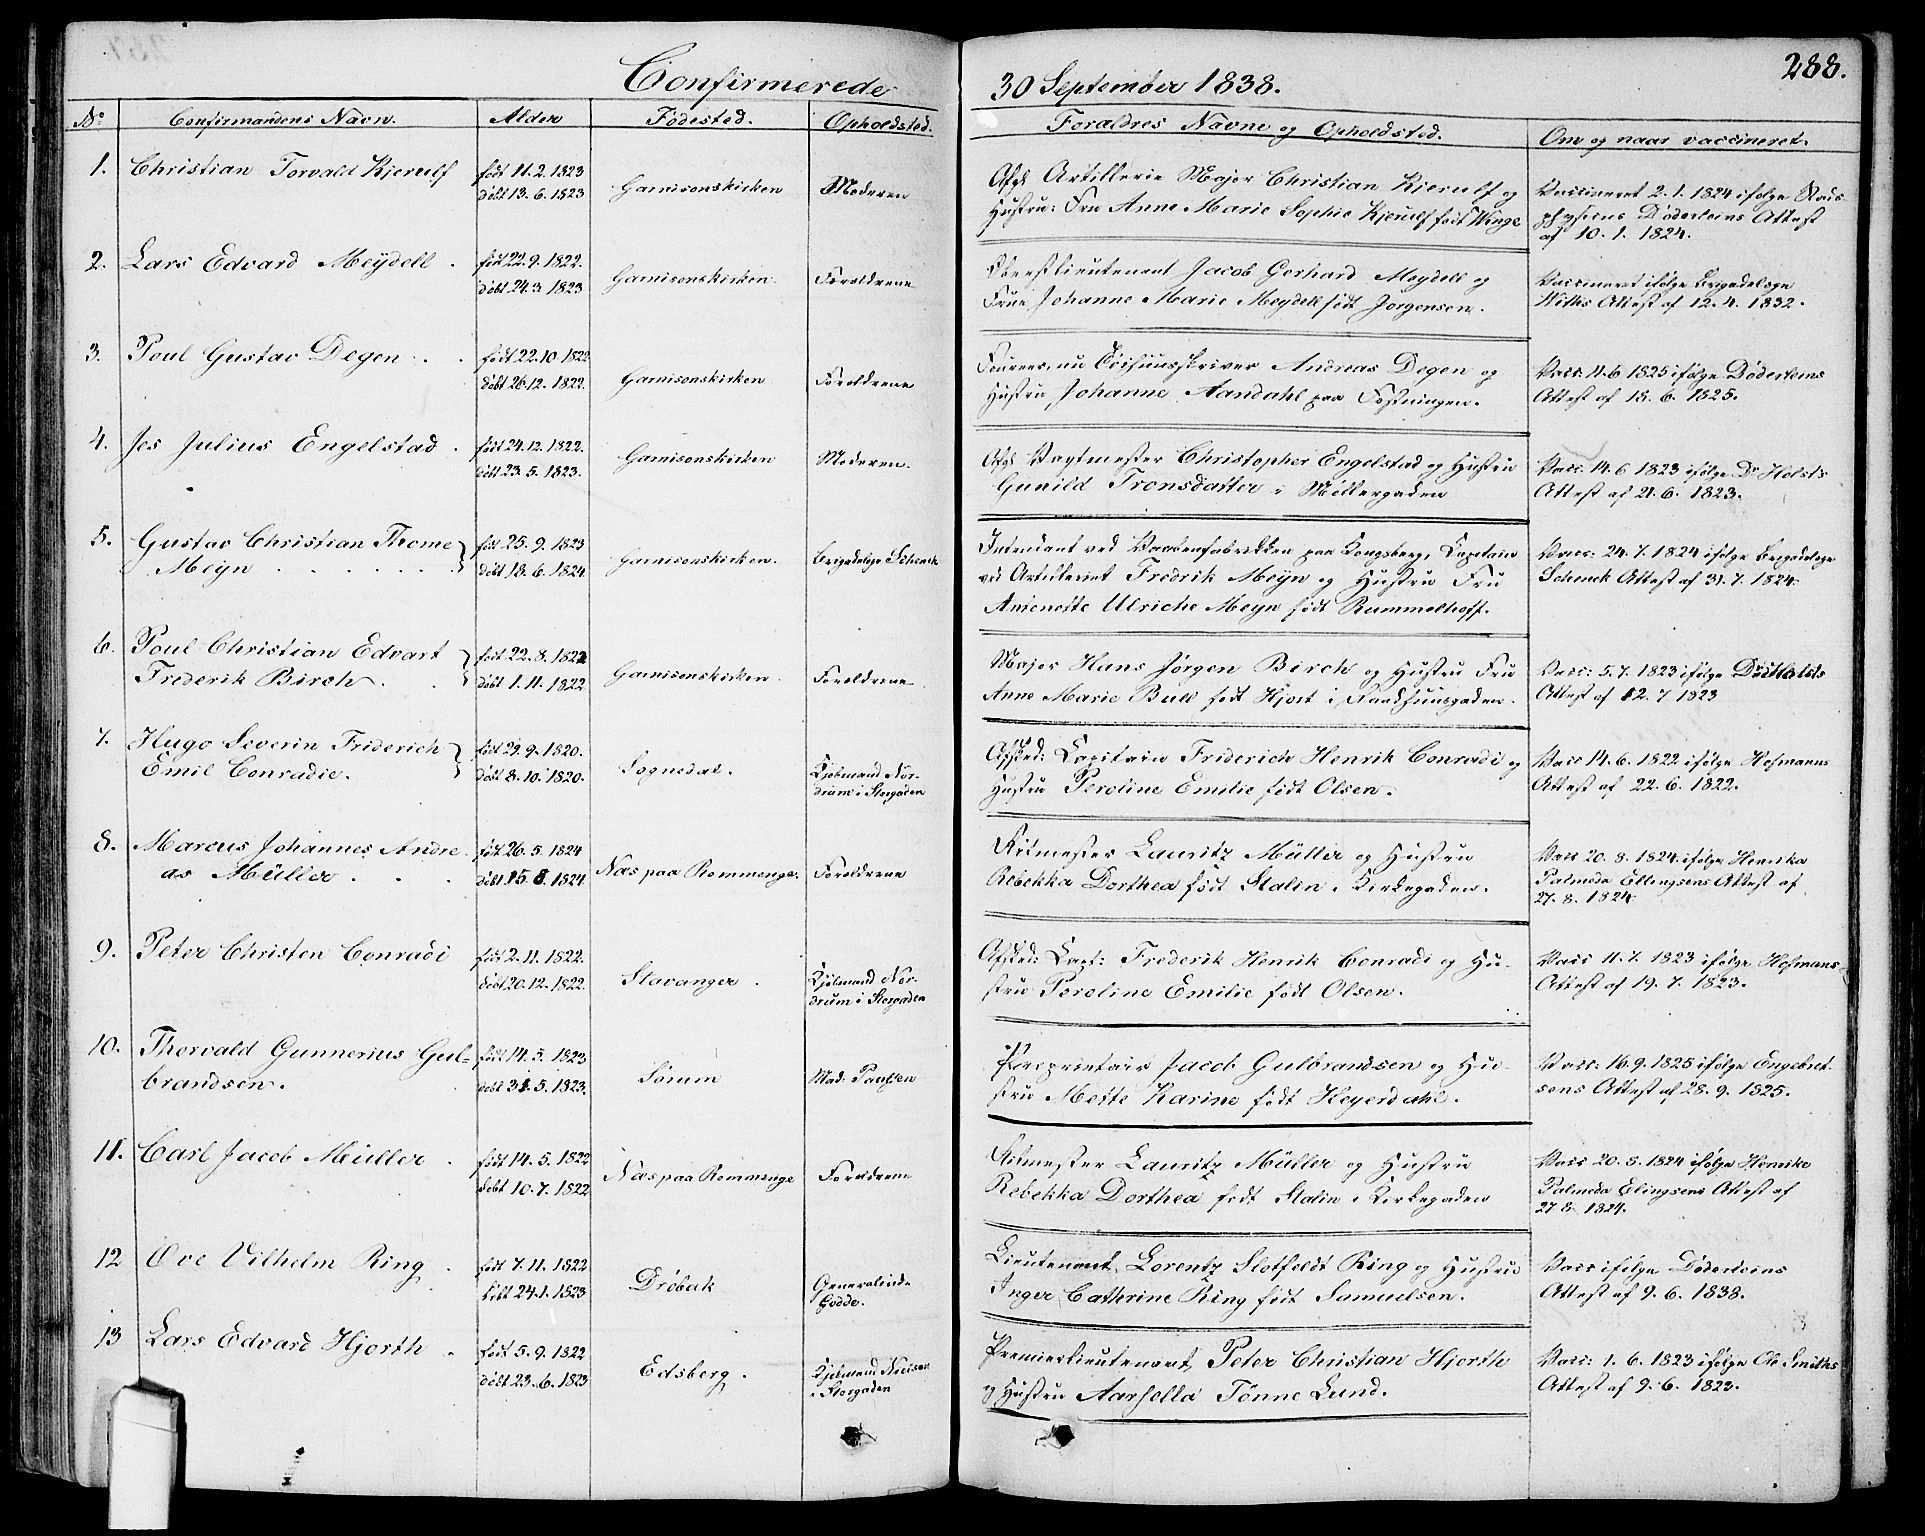 288.
Confirmerede 30 September 1838.
No Confirmandens Navn. Alder Fødested. Opholdsted. Forældres Navne og Opholdsted. Om og naar vaccineret.
1. Christian Torvald Kjerulf født 11. 2. 1823 Garnisonskirken Moderen Afgl Artillerie Major Christian Kjerulf og Vaccineret 2. 1. 1824 ifølge Stads
døbt 13. 6. 1823 Hustru: Fru Anne Marie Sophie Kjerulf født Winge physicus Døderleins Attest
af 10. 1. 1824.
2. Lars Edvard Meydell født 22. 9. 1822. Garnisonskirken Forældrene Oberstlieutenant Jacob Gerhard Meydell og Vaccineret ifølge Brigadelæge
døbt 24. 3 1823 Frue Johanne Marie Meydell født Jørgensen. Withs Attest af 12. 4. 1832.
3. Poul Gustav Degen født 22. 10. 1822 Garnisonskirken Forældrene nu Andreas Degen og Vacc: 11. 6 1825 ifølge Døderleins
døbt 26. 12. 1822. Hustru Johanne Aandahl paa Fæstningen. Attest af 15. 6. 1825.
4. Jes Julius Engelstad født 24. 12. 1822. Garnisonskirken Moderen. Afgl Vagtmester Christopher Engelstad og Hustru Vacc: 14. 6 1823 ifølge Dr Holsts
døbt 23. 5. 1823. Gunild Tronsdatter i Møllergaden Attest af 21. 6. 1823.
5. Gustav Christian Thome født 25. 9. 1823 Garnisonskirken. Brigadelæge Schenck Intendant ved Vaabenfabrikken paa Kongsberg, Capitain Vacc: 24. 7. 1824 ifølge Brigadelæge
Meyn døbt 18. 6. 1824. ved Artilleriet Fredrik Meyn og Hustru Fru Schenck Attest af 31. 7. 1824.
Antonette Ulriche Meyn født Rummelhoff.
6. Poul Christian Edvart født 22. 8. 1822 Garnisonskirken. Forældrene Major Hans Jørgen Birch og Hustru Fru Vacc: 5. 7. 1823 ifølge Dr Holsts
Frederik Birch. døbt 1. 11. 1822. Anne Marie Bull født Hjort i Raadhuusgaden. Attest af 12. 7 1823
7. Hugo Severin Friderich født 29. 9. 1820. Sognedal. Kjøbmand Nor- Afsked: Capitain Friderich Henrik Conradi og Vacc 14. 6. 1822 ifølge Hofmanns
Emil Conradie. døbt 8. 10. 1820. drum i Storgaden Hustru Peroline Emilie født Olsen. Attest af 22. 6. 1822.
8. Marcus Johannes Andre født 26. 5. 1824 Næs paa Rommerige. Forældrene Ritmester Lauritz Müller og Hustru Vacc 20. 8. 1824 ifølge Henrika
as Müller. døbt 15. 8. 1824. Rebekka Dorthea født Stalin i Kirkegaden. Palmeda Ellingsens Attest af
27. 8. 1824.
9. Peter Christen Conradi født 2. 11. 1822. Stavanger. Kjøbmand Nor- Afsked: Capt: Frederik Henrik Conradi og Hu- Vacc 11. 7. 1823 ifølge Hofmans
døbt 20. 12. 1822. drum i Storgaden stru Peroline Emilie født Olsen. Attest af 19. 7. 1823.
10. Thorvald Gunnerius Gul- født 14. 3. 1823 Sørum Mad: Paulsen Proprietair Jacob Gulbrandsen og Hu- Vacc: 16. 9. 1825 ifølge Engebret-
brandsen. døbt 31. 5. 1823. stru Mette Karine født Heyerdahl. sens Attest af 28. 9. 1825.
11. Carl Jacob Müller født 14. 5. 1822 Næs paa Rommerige Forældrene Ritmester Lauritz Müller og Hustru Vacc 20. 8. 1824 ifølge Henrike
døbt 10. 7. 1822 Rebekka Dorthea født Stalin i Kirkegaden Palmeda Elingsens Attest af
27. 8. 1824.
12 Ove Vilhelm Ring født 7. 11. 1822 Drøbak Generalinde Lieutenant Lorentz Slotfeldt Ring og Hustrue Vacc ifølge Døderleins
døbt 24. 1. 1823 Inger Cathrine Ring født Samuelsen. Attest af 9. 6. 1838.
13 Lars Edvard Hjorth født 5. 9. 1822 Edsberg. Kjøbmand Nielsen Premierlieutenant Peter Christian Hjorth Vacc: 1. 6. 1823 ifølge Ole Smiths
døbt 23. 6. 1823 i Storgaden og Hustru Tønne Lund. Attest af 9. 6. 1823.